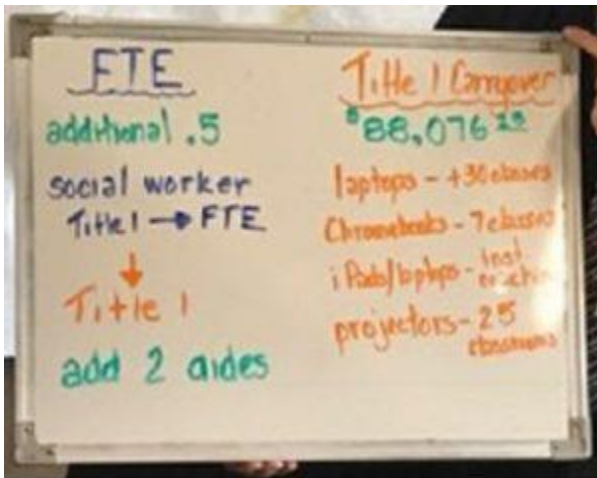 FTE
additional .5
social worker
Title 1 → FTE
↓
Title 1
add 2 aides
Title 1 Carryover
$88,076
laptops - +30 classes
Chromebooks - 7 classes
iPads/laptops -
projectors - 25
classrooms